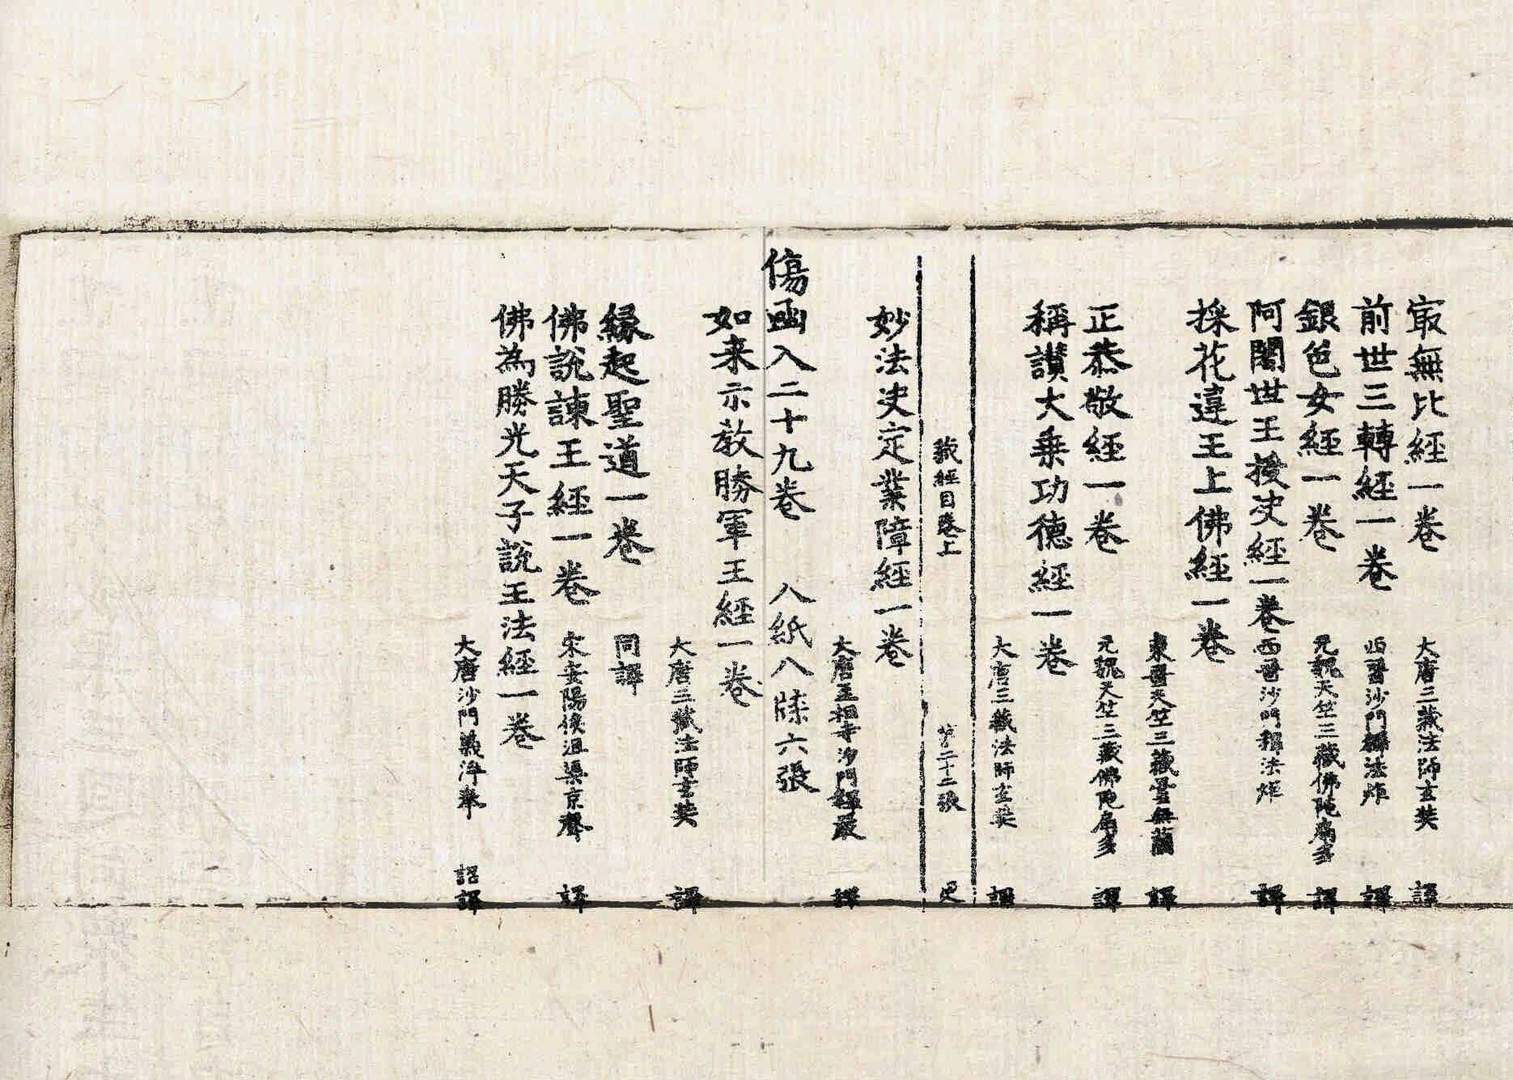 寂無比經一卷 大唐三藏法師玄奘 譯
前世三轉經一卷 西晋沙門釋法炬 譯
銀色女經一卷 元魏天竺三藏佛陁扇多 譯
阿闍世王授決經一卷 西晋沙門釋法炬 譯
採花違王上佛經一卷
東晋天竺三藏曇無蘭 譯
正恭敬經一卷 元魏天竺三藏佛陁扇多 譯
稱讃大乗功德經一卷
大唐三藏法師玄奘 譯
藏經目卷上 第二十二張
妙法决定業障經一卷
大唐至相寺沙門釋嚴 譯
傷凾入二十九卷 八紙八牒六張
如来示教勝軍王經一卷
大唐三藏法師玄奘 譯
緣起聖道一卷 同譯
佛說諫王經一卷 宋安陽侯沮渠京聲 譯
佛為勝光天子說王法經一卷
大唐沙門義淨奉 詔譯